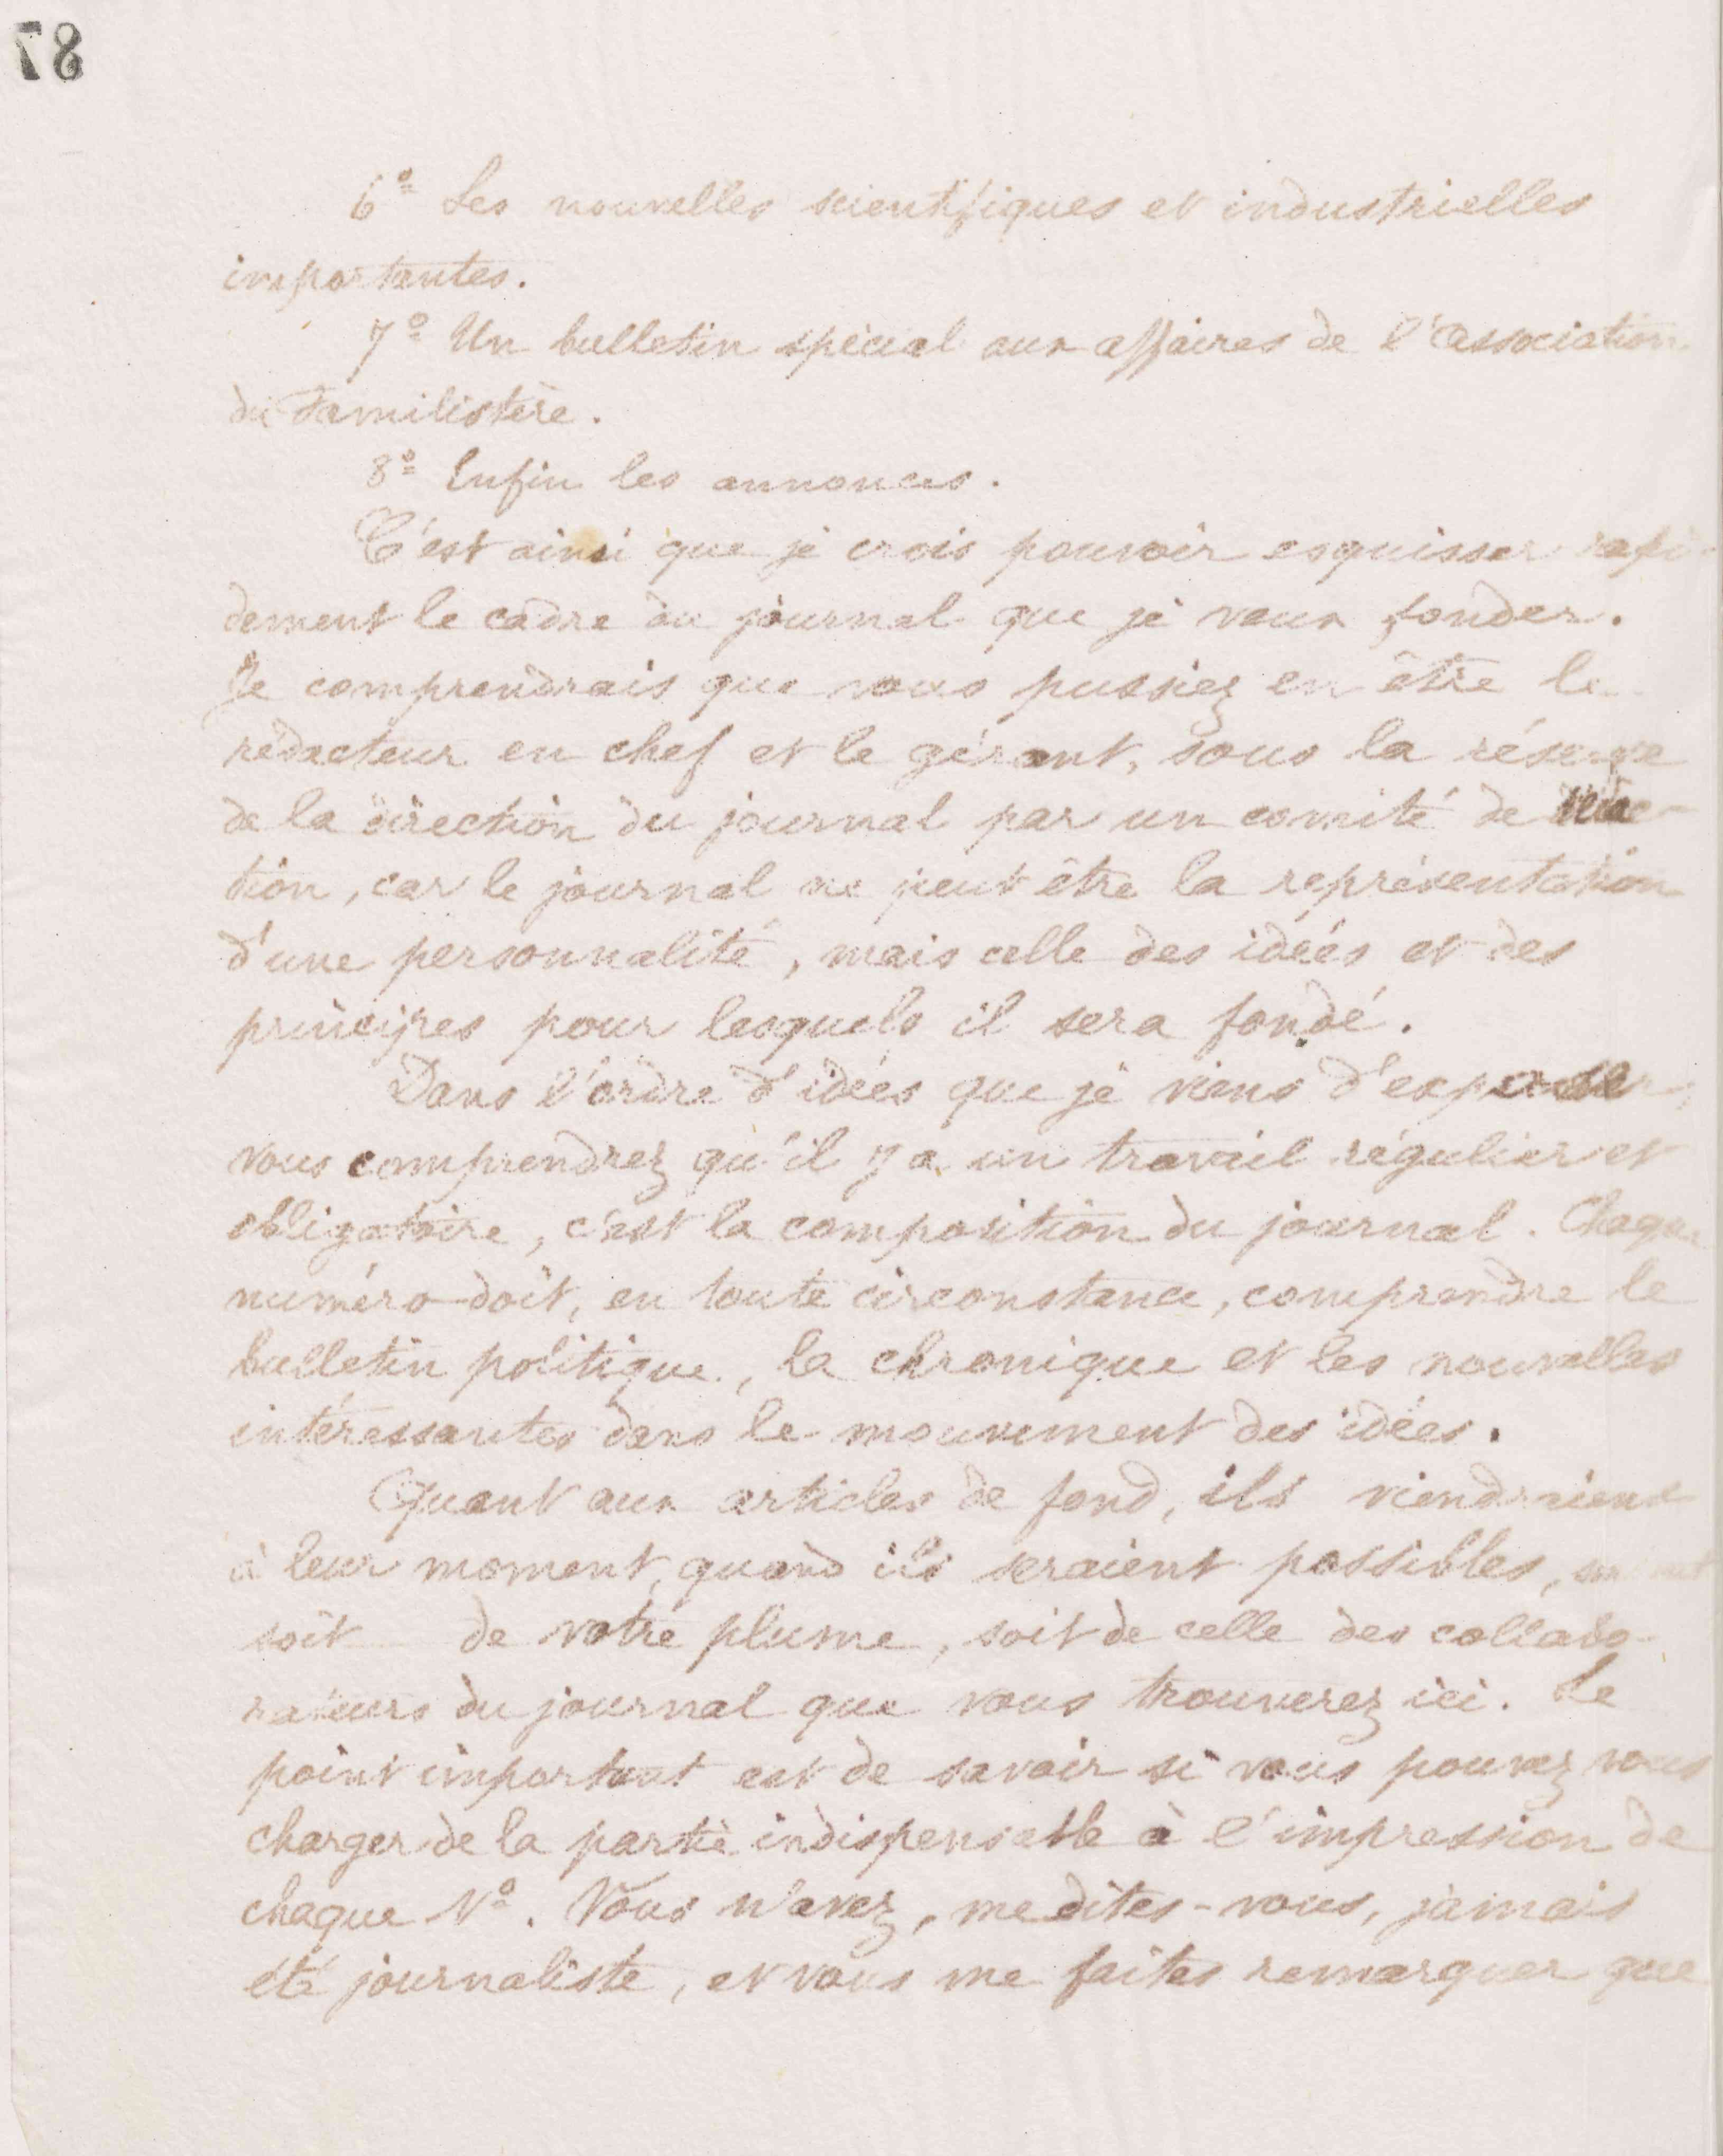 87
6º Les nouvelles scientifiques et industrielles
importantes.
7º Un bulletin spécial aux affaires de l'association
du Familistère.
8º Enfin les annonces.
C'est ainsi que je crois pouvoir esquisser rapi-
dement le cadre du journal que je veux fonder.
Je comprendrais que vous pussiez en être le
rédacteur en chef et le gérant, sous la réserve
de la direction du journal par un comité de rédac-
tion, car le journal ne peut être la représentation
d'une personnalité, mais celle des idées et des
principes pour lesquels il sera fondé.
Dans l'ordre d'idées que je viens d'exposer,
vous comprendrez qu'il y a un travail régulier et
obligatoire, c'est la composition du journal. Chaque
numéro doit, en toute circonstance, comprendre le
bulletin politique, la chronique et les nouvelles
intéressantes dans le mouvement des idées.
Quant aux articles de fond, ils viendraient
à leur moment, quand ils seraient possibles,
soit de votre plume, soit de celle des collabo-
rateurs du journal que vous trouverez ici. Le
point important est de savoir si vous pouvez vous
charger de la partie indispensable à l'impression de
chaque Nº. Vous n'avez, me dites-vous, jamais
été journaliste, et vous me faites remarquer que